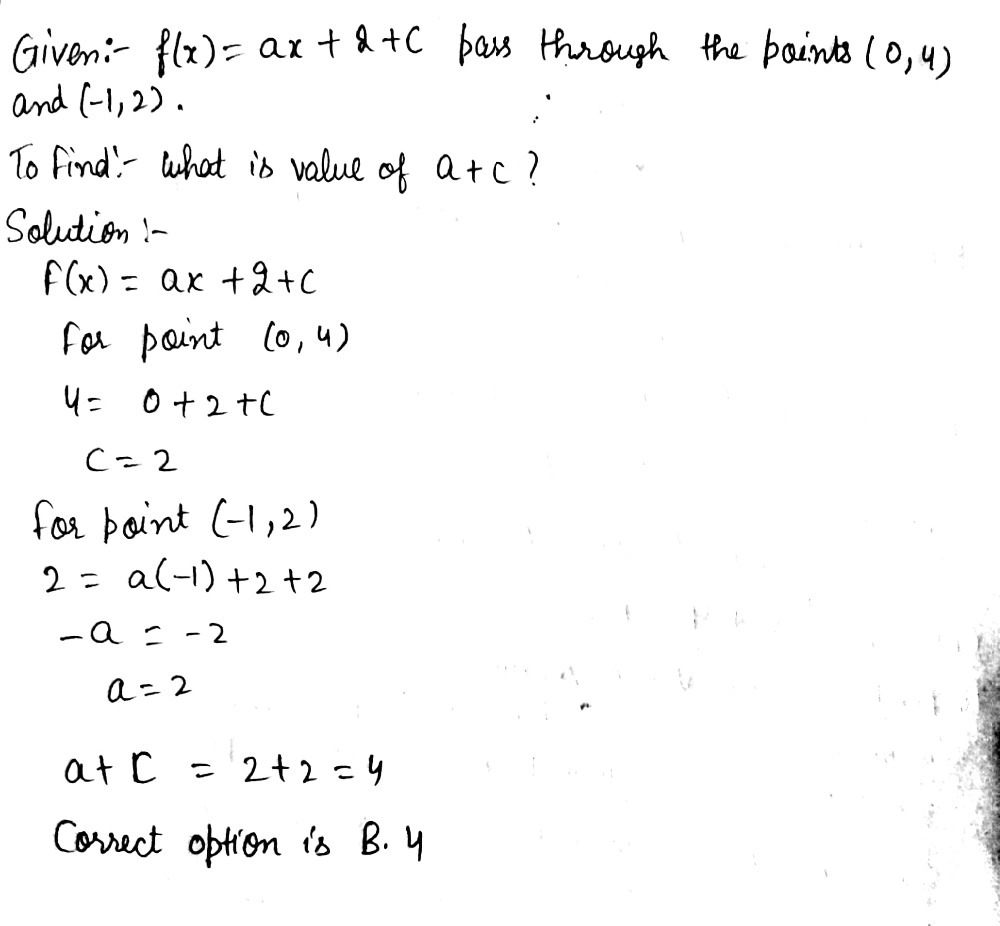 Given:- f(x) = ax + 2 + C pass through the points (0, 4)
and (-1, 2).
To find:- what is value of a + c ?
Solution :-
f(x) = ax + 2 + C
For point (0, 4)
4 = 0 + 2 + C
C = 2
for point (-1, 2)
2 = a(-1) + 2 + 2
-a = -2
a = 2
a + C = 2 + 2 = 4
Correct option is B. 4